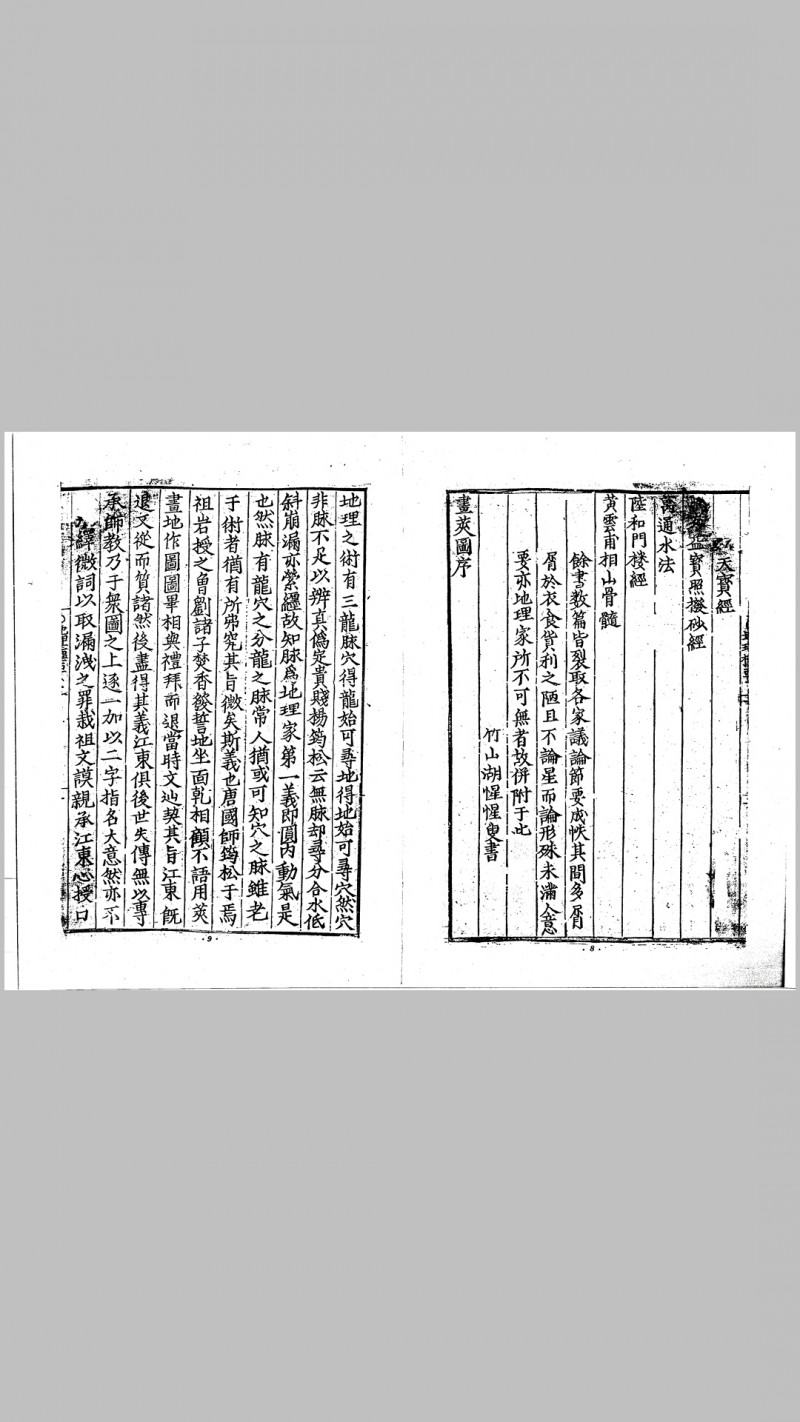 天寶經
寶照撥砂經
通水法
陸和門樓經
黃雲甫相山骨髓
餘書数篇皆裂取各家議論節要成帙其間多屑
屑於衣食貨利之陋且不論星而論形殊未滿人意
要亦地理家所不可無者故併附于此
竹山湖惺惺叟書
畫莢圖序
8
地理之術有三龍脉穴得龍始可尋地得地始可尋穴然穴
非脉不足以辨真偽定貴賤揚筠松云無脉却尋分合水低
斜崩漏亦縈纒故知脉爲地理家第一義即圓内動氣是
也然脉有龍穴之分龍之脉常人猶或可知穴之脉雖老
于術者猶有所弗究其旨微矣斯義也唐國師筠松于焉
祖岩授之曾劉諸子焚香設誓地坐面乾相顧不語用莢
畫地作圖圖畢相與禮拜而退當時文辿契其旨江東旣
退又從而質諸然後盡得其義江東俱後世失傳無以專
承師教乃于衆圖之上逐一加以二字指名大意然亦不
繹微詞以取漏洩之罪裁祖文謨親承江東心授口
9